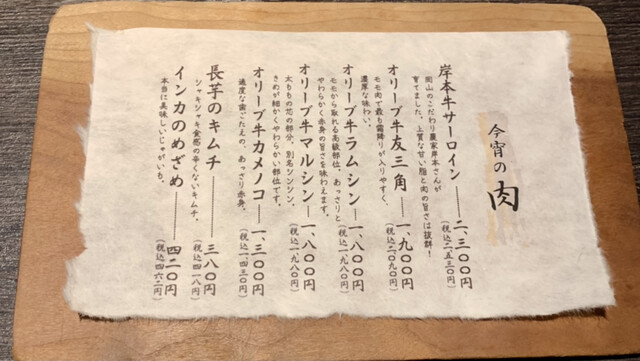 今宵の肉
岸本牛サーロイン――二、三〇〇円
岡山のこだわり農家岸本さんが
育てました。上質な甘い脂と肉の旨さは抜群！
（税込二、五三〇円）
オリーブ牛友三角――一、九〇〇円
モモ肉で最も霜降りが入りやすく、
濃厚な味わい。
（税込二、〇九〇円）
オリーブ牛ラムシン――一、八〇〇円
モモから取れる高級部位。あっさりと
やわらかく赤身の旨さを味わえます。
（税込一、九八〇円）
オリーブ牛マルシン――一、八〇〇円
太ももの芯の部分。別名シンシン。
きめが細かくやわらかい部位です。
（税込一、九八〇円）
オリーブ牛カメノコ――一、三〇〇円
適度な歯ごたえの、あっさり赤身。
（税込一、四三〇円）
長芋のキムチ――三八〇円
シャキシャキ食感の辛くないキムチ。
（税込四一八円）
インカのめざめ――四二〇円
本当に美味しいじゃがいも。
（税込四六二円）